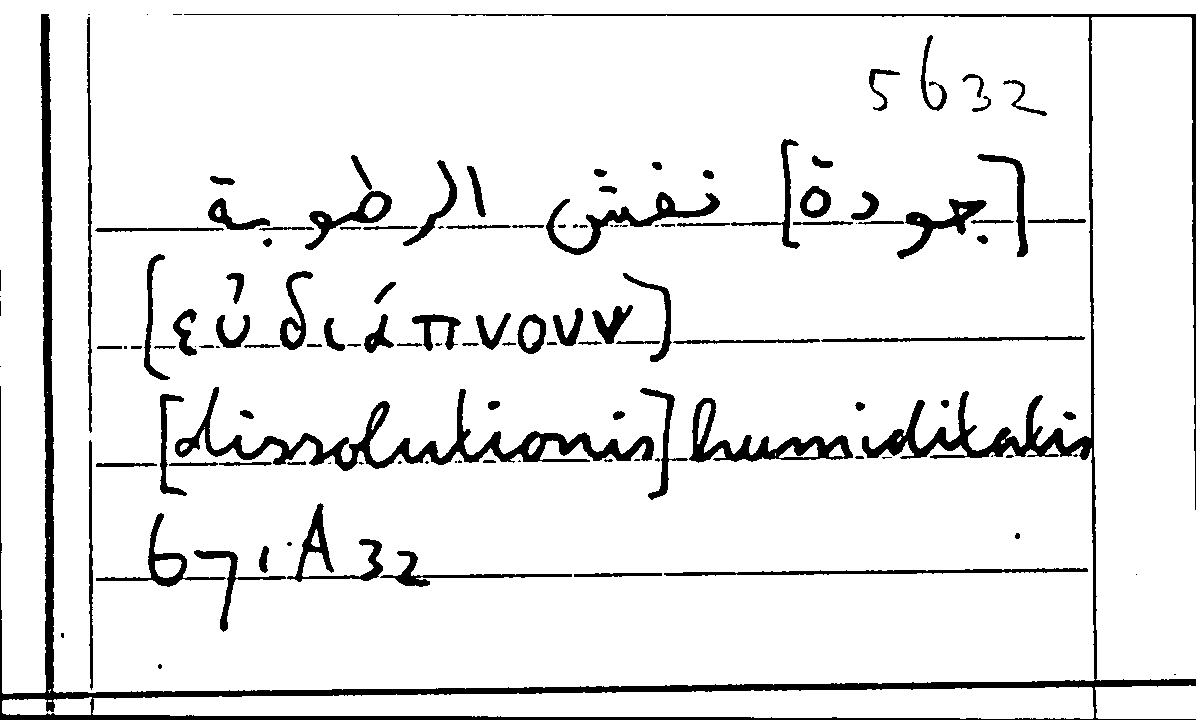 5632
[جودة] نفش الرطوبة
[εὐδιάπνουν]
[dissolutionis] humiditatis
671 A 32